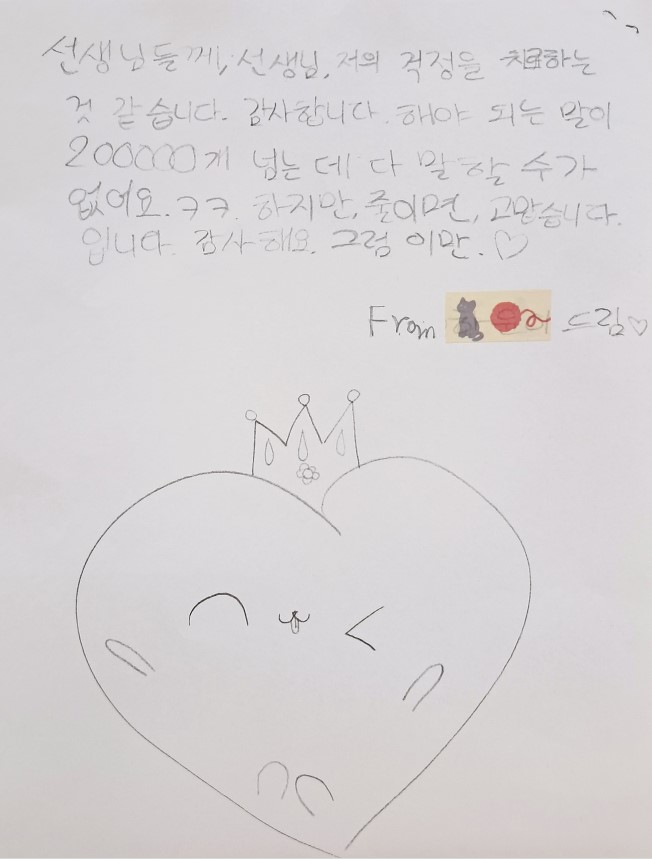 선생님들께, 선생님, 저의 걱정을 치료하는
것 같습니다. 감사합니다. 해야 되는 말이
200000개 넘는 데 다 말할 수가
없어요. ㅋㅋ. 하지만, 줄이면, 고맙습니다.
입니다. 감사해요. 그럼 이만. ♡
From 드림♡